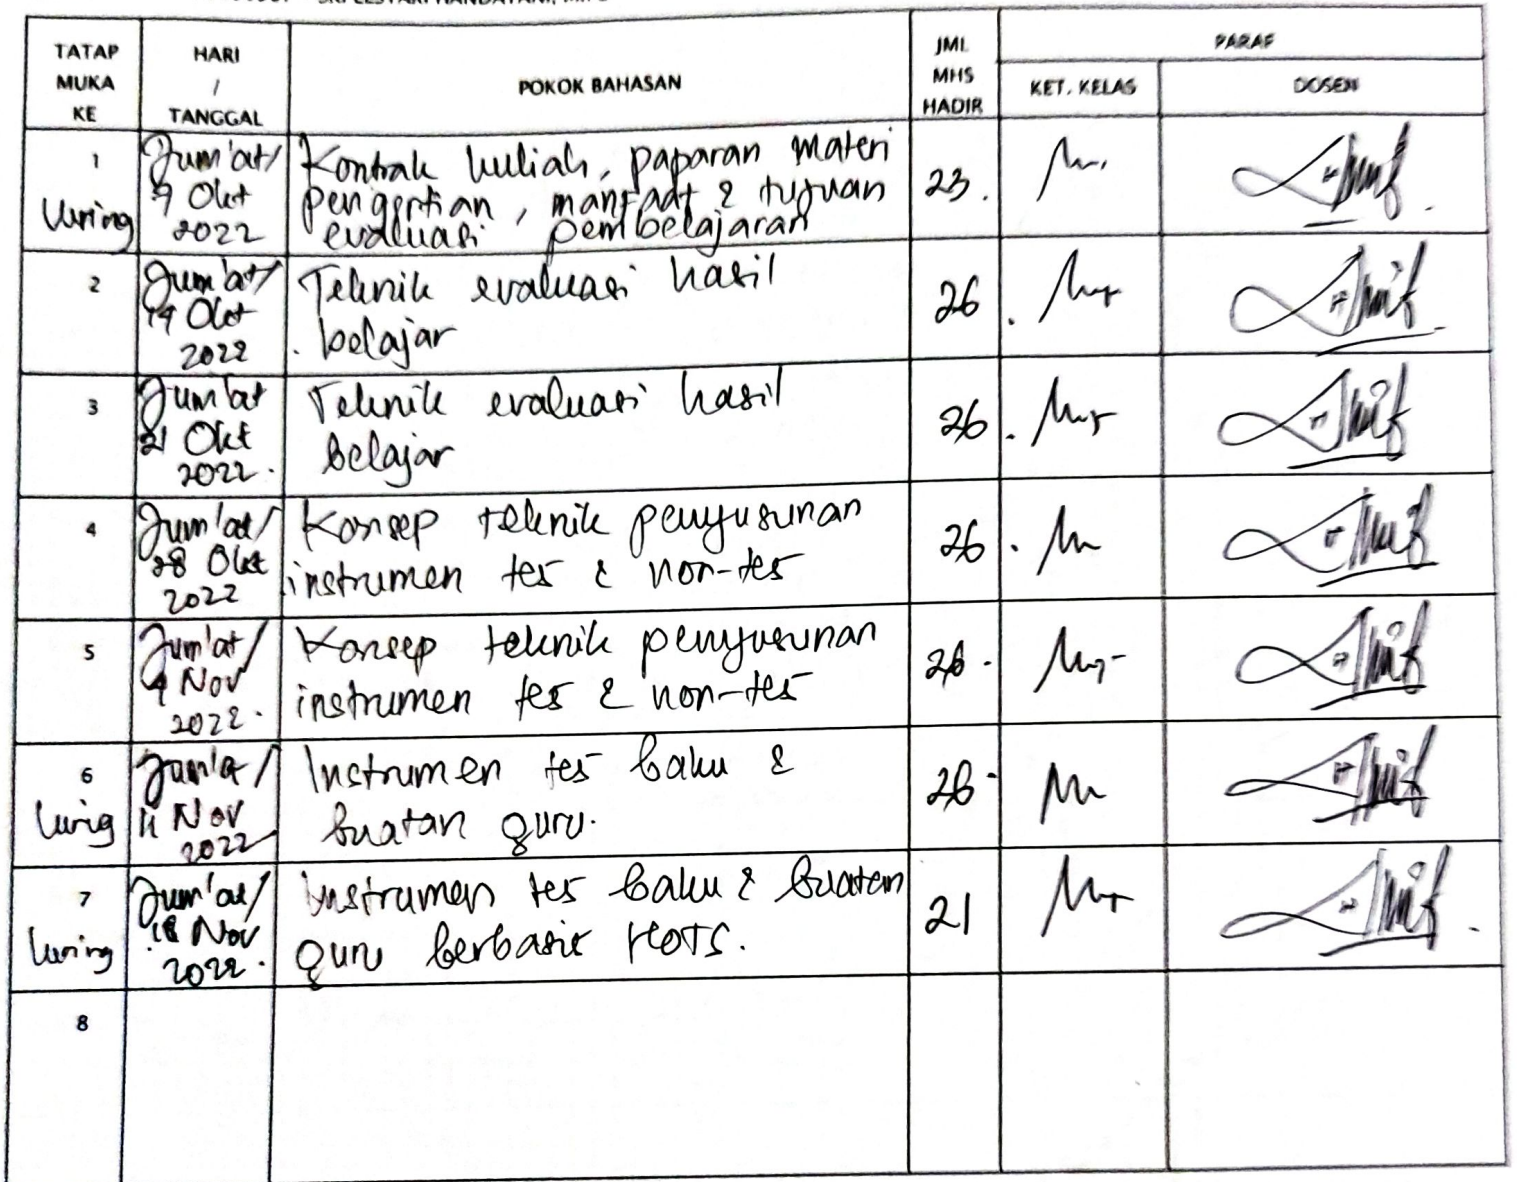 TATAP MUKA KE
HARI / TANGGAL
POKOK BAHASAN
JML MHS HADIR
PARAF
KET. KELAS
DOSEN
1
luring
Jum'at/
7 Okt
2022
Kontrak kuliah, paparan materi
pengertian, manfaat & tujuan
evaluasi pembelajaran
23.
2
Jum'at/
14 Okt
2022
Teknik evaluasi hasil
belajar
26
3
Jum'at
21 Okt
2022.
Teknik evaluasi hasil
belajar
26
4
Jum'at/
28 Okt
2022
Konsep teknik penyusunan
instrumen tes & non-tes
26
5
Jum'at/
4 Nov
2022.
Konsep teknik penyusunan
instrumen tes & non-tes
26
6
luring
Jum'a/
11 Nov
2022
Instrumen tes baku &
buatan guru.
26
7
luring
Jum'at/
18 Nov
2022.
Instrumen tes baku & buatan
guru berbasis HOTS.
21
8